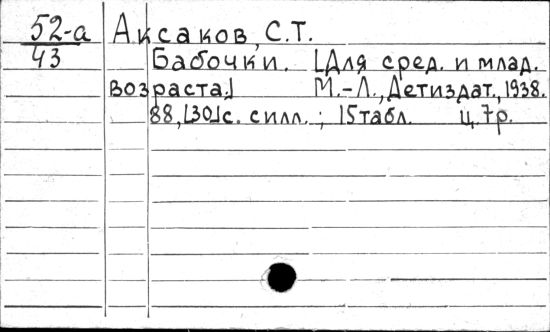 52-а Аксаков, С.Т.
43 Бабочки. [Для сред. и млад.
возраста.] М.-Л., Детиздат., 1938.
88, [30] с. с илл. ; 15 табл. ц. 7р.